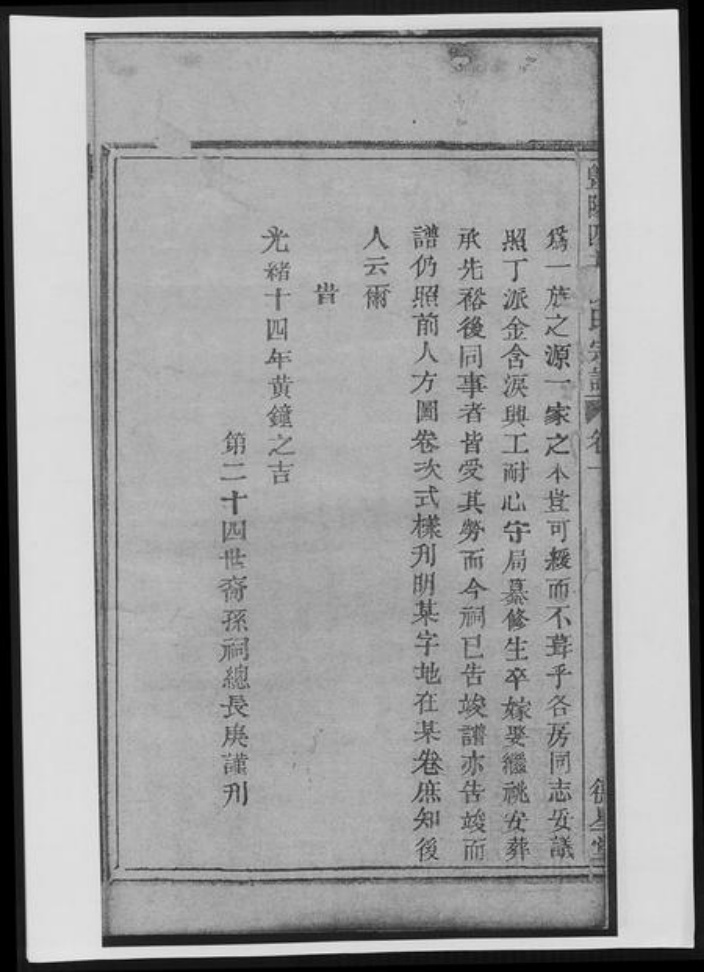 暨陽四 氏宗譜 卷一
爲一族之源一家之本豈可緩而不葺乎各房同志妥議
照丁派金含淚興工耐心守局纂修生卒嫁娶繼祧安葬
承先裕後同事者皆受其勞而今祠已告竣譜亦告竣而
譜仍照前人方圖卷次式樣刋明某字地在某卷庶知後
人云爾
旹
光緒十四年黄鐘之吉
第二十四世裔孫祠總長庚謹刋